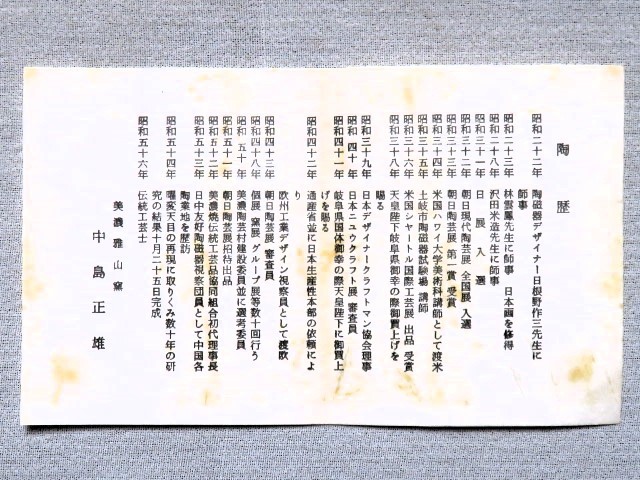 陶歴
昭和二十二年 陶磁器デザイナー日根野作三先生に
師事
昭和二十三年 林雲鳳先生に師事 日本画を修得
昭和二十八年 沢田米造先生に師事
昭和三十一年 日展入選
昭和三十二年 朝日現代陶芸展 全国展 入選
昭和三十三年 朝日陶芸展 第一賞 受賞
昭和三十四年 米国ハワイ大学美術科講師として渡米
昭和三十五年 土岐市陶磁器試験場 講師
昭和三十六年 米国シヤートル国際工芸展 出品 受賞
昭和三十八年 天皇陛下岐阜県御幸の際御買上げを
賜る
昭和三十九年 日本デザイナークラフトマン協会理事
昭和四十年 日本ニユウクラフト展 審査員
昭和四十一年 岐阜県国体御幸の際天皇陛下に御買上
げを賜る
昭和四十二年 通産省並に日本生産性本部の依頼によ
り
欧州工業デザイン視察員として渡欧
昭和四十三年 朝日陶芸展 審査員
昭和四十八年 個展 窯展 グループ展等数十回行う
昭和五十年 美濃陶芸村建設委員並に選考委員
昭和五十一年 朝日陶芸展招待出品
昭和五十二年 美濃焼伝統工芸品協同組合初代理事長
昭和五十三年 日中友好陶磁器視察団員として中国各
陶業地を歴訪
昭和五十四年 曜変天目の再現に取りくみ数十年の研
究の結果十月二十五日完成
昭和五十六年 伝統工芸士
美濃雅山窯
中島正雄